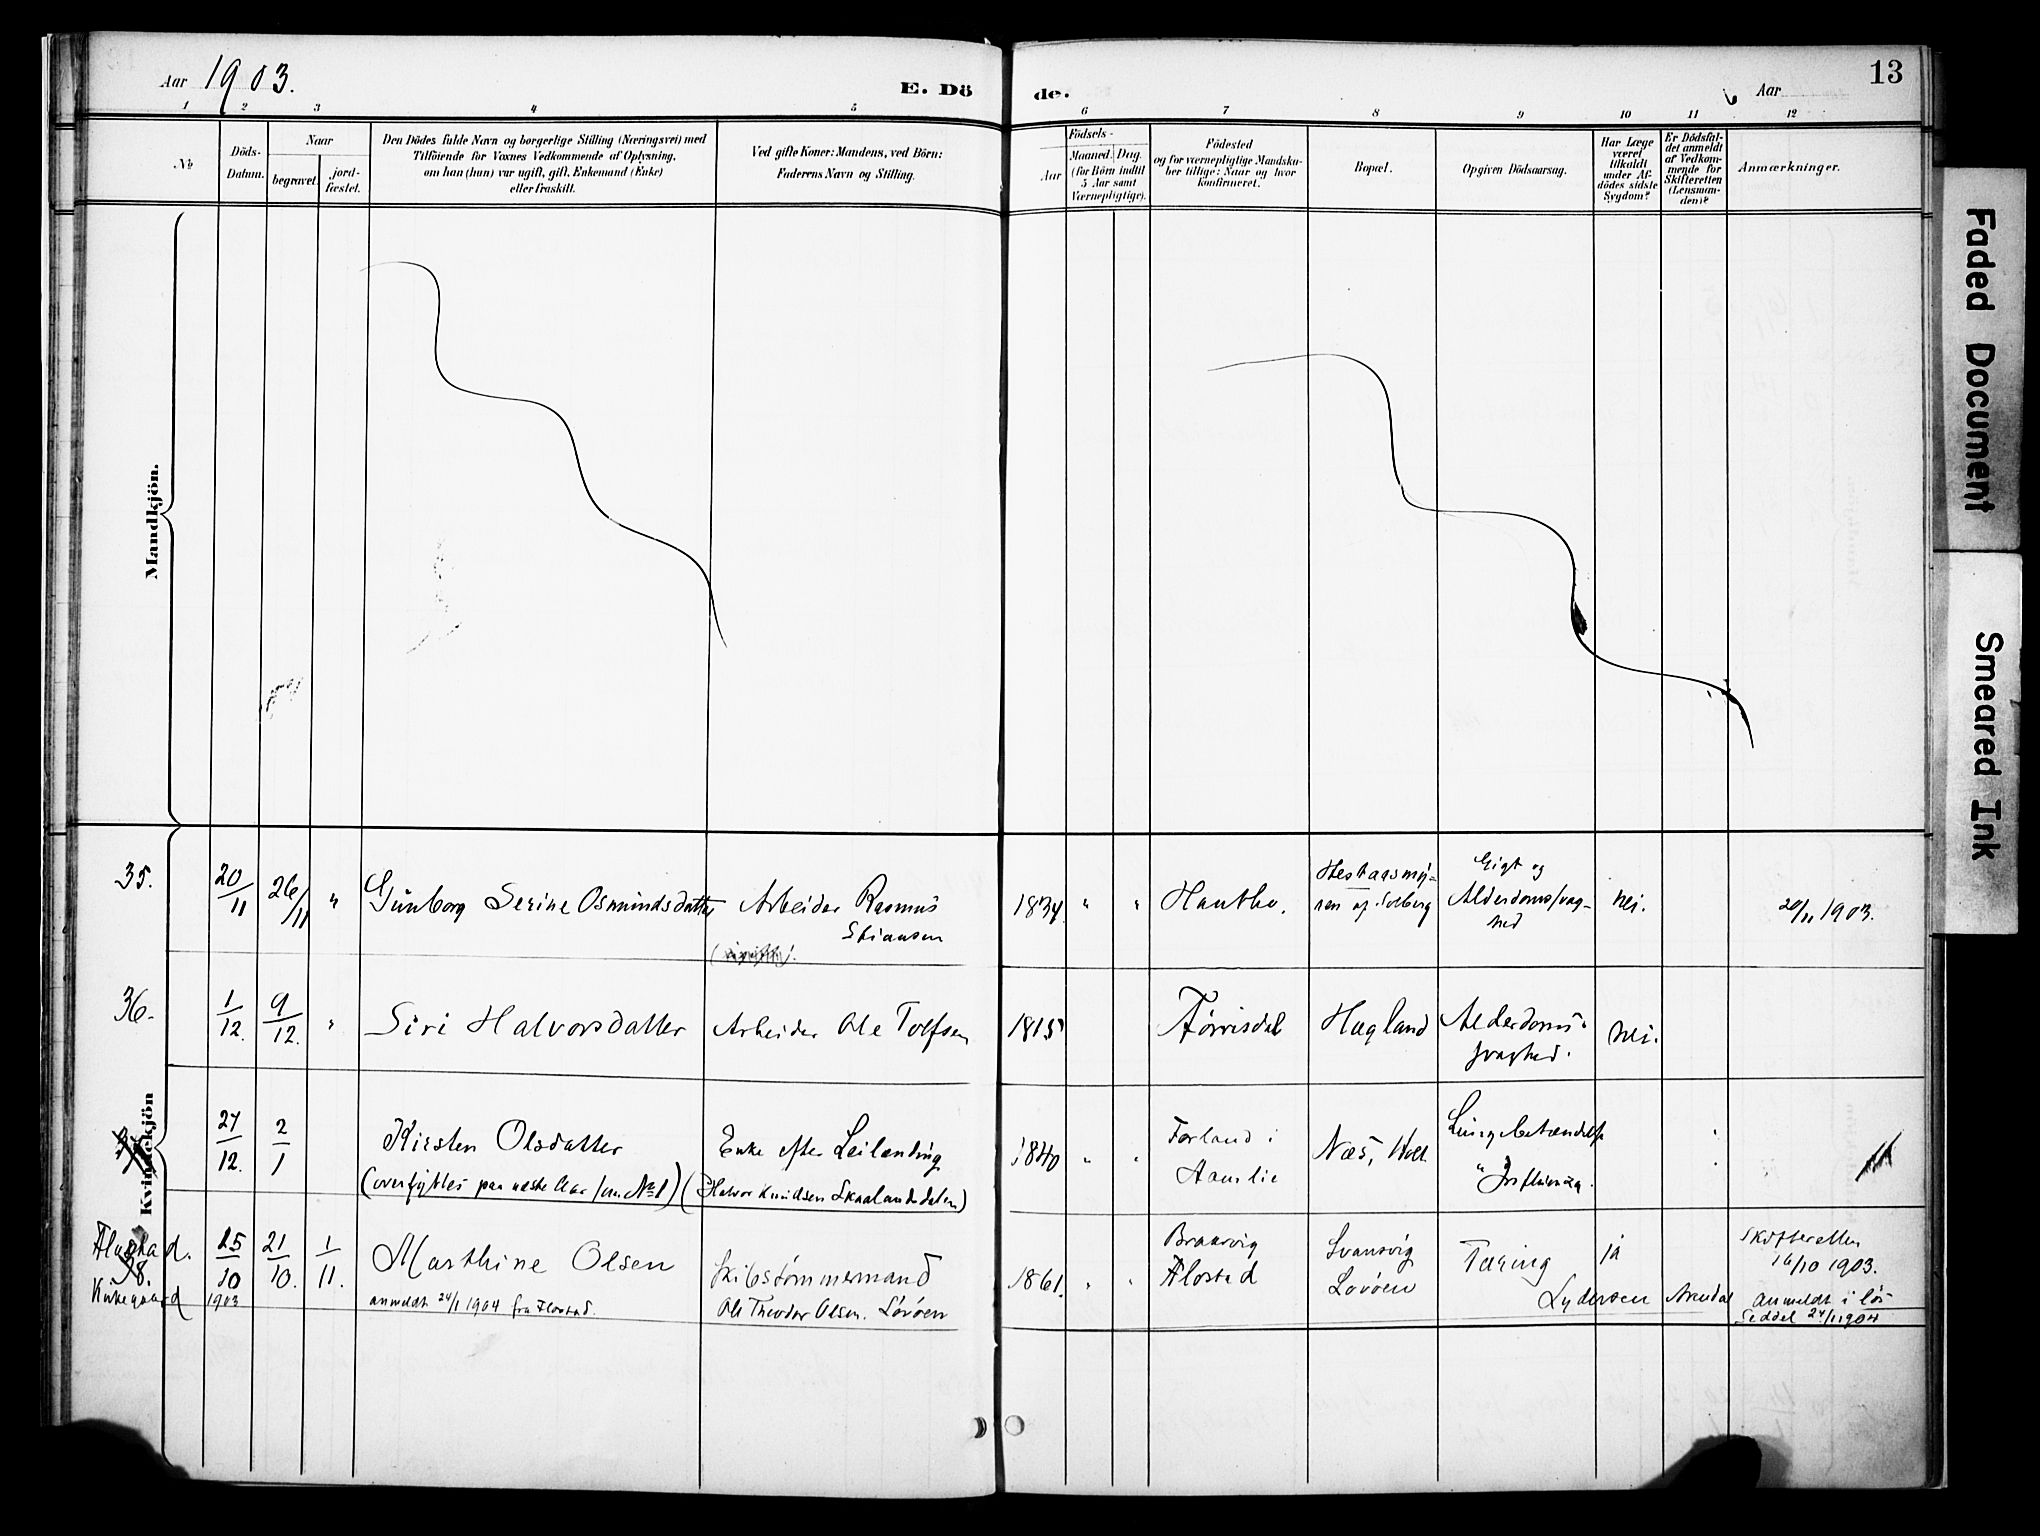 Aar 1903.
E. Dö
de.
Aar
13
1 2 3 4 5
6 7 8 9 10 11 12
№
Döds-
Datum.
Naar
begravet.
jord-
fæstet.
Den Dödes fulde Navn og borgerlige Stilling (Næringsvei) med
Tilföiende for Voxnes Vedkommende af Oplysning,
om han (hun) var ugift, gift, Enkemand (Enke)
eller fraskilt.
Ved gifte Koner: Mandens, ved Börn:
Faderens Navn og Stilling.
Födsels-
Aar
Maaned. Dag.
(for Börn indtil
5 Aar samt
Værnepligtige).
Födested
og for værnepligtige Mandsku-
ber tillige: Naar og hvor
konfirmeret.
Bopæl.
Opgiven Dödsaarsag.
Har Læge
været
tilkaldt
under Af-
dödes sidste
Sygdom?
Er Dödsfal-
det anmeldt
af Vedkom-
mende for
Skifteretten
(Lensman-
den)?
Anmærkninger.
Mandkjön.
Kvindekjön
35.
20/11
26/11
"
Gunborg Serine Osmundsdatter
Arbeider Rasmus
Stiansen
1834
"
"
Hantho.
Heståasmy-
ren af Solberg
Gigt og
Alderdomssvag-
hed
nei.
20/11 1903.
36.
1/12.
9/12.
"
Siri Halvorsdatter
Arbeider Ole Tolfsen
1815
Tørrisdal
Hagland
Alderdoms-
svaghed.
nei.
27/12.
2/1
Kirsten Olsdatter
(overflyttes paa næste Aar som № 1)
Enke efter Leilænding
(Halvor Knudsen Skaalandsdalen)
1840
"
"
Forland i
Aamlie
Næs, Holt
Lungebetændelse
" Influenza.
Flosta d.
38.
Kirkegaard
25/10
1903
21/10.
1/11.
Marthine Olsen
anmeldt 24/1 1904 fra Flostad.
Skibstømmermand
Ole Theodor Olsen. Løvøen
1861.
"
"
Braarvig
Flostad
Svansvig
Løvøen
Tæring
ja
Lydersen Arendal
Skifteretten
16/10 1903.
Anmeldt i løs
Seddel 24/1 1904
Faded Document
Smeared Ink